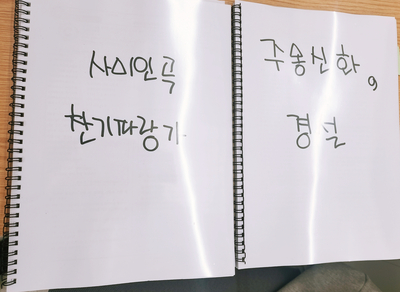 사미인곡
찬기파랑가
주몽신화,
경설